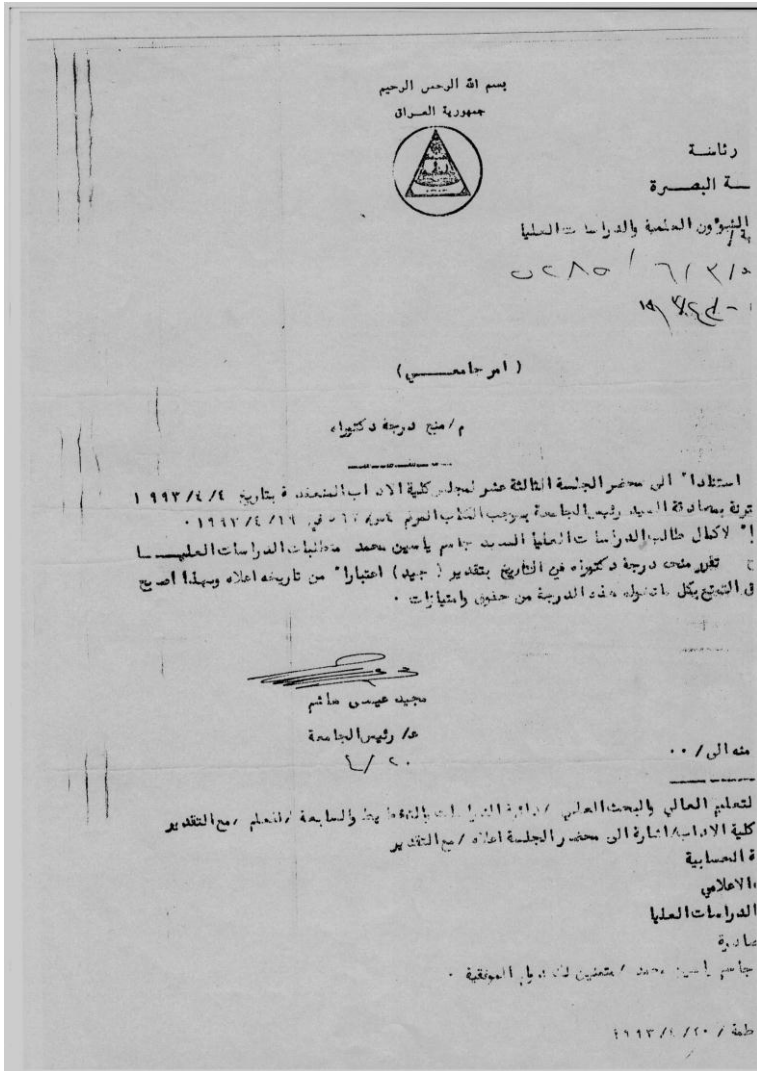 بسم الله الرحمن الرحيم
جمهورية العراق
رئاسة
ـة البصرة
الشؤون العلمية والدراسات العليا
ـة /
/٣/٦ / ٢٨٥
( امر جامعي )
م/ منح درجة دكتوراه
استنادا" الى محضر الجلسة الثالثة عشر لمجلس كلية الاداب المنعقدة بتاريخ ١٩٩٣/٤/٤
بمصادقة السيد رئيس الجامعة بموجب الكتاب المرقم في ١٩٩٣/٤/١٦ ٠
لاكمال طالب الدراسات العليا السيد جاسم ياسين محمد متطلبات الدراسات العليا
تقرر منحه درجة دكتوراه في التاريخ بتقدير ( جيد ) اعتبارا" من تاريخه اعلاه وبهذا اصبح
التمتع بكل ماتخوله هذه الدرجة من حقوق وامتيازات ٠
مجيد عيسى هاشم
ع/ رئيس الجامعة
٤/٢٠
منه الى / ٠٠
لتعليم العالي والبحث العلمي / دائرة الدراسات والتخطيط والمتابعة / للعلم / مع التقدير
كلية الاداب/ اشارة الى محضر الجلسة اعلاه / مع التقدير
ة الحسابية
الاعلامي
الدراسات العليا
صادرة
جاسم ياسين محمد / متمنين لك دوام الموفقية ٠
١٩٩٣/٤/٢٠